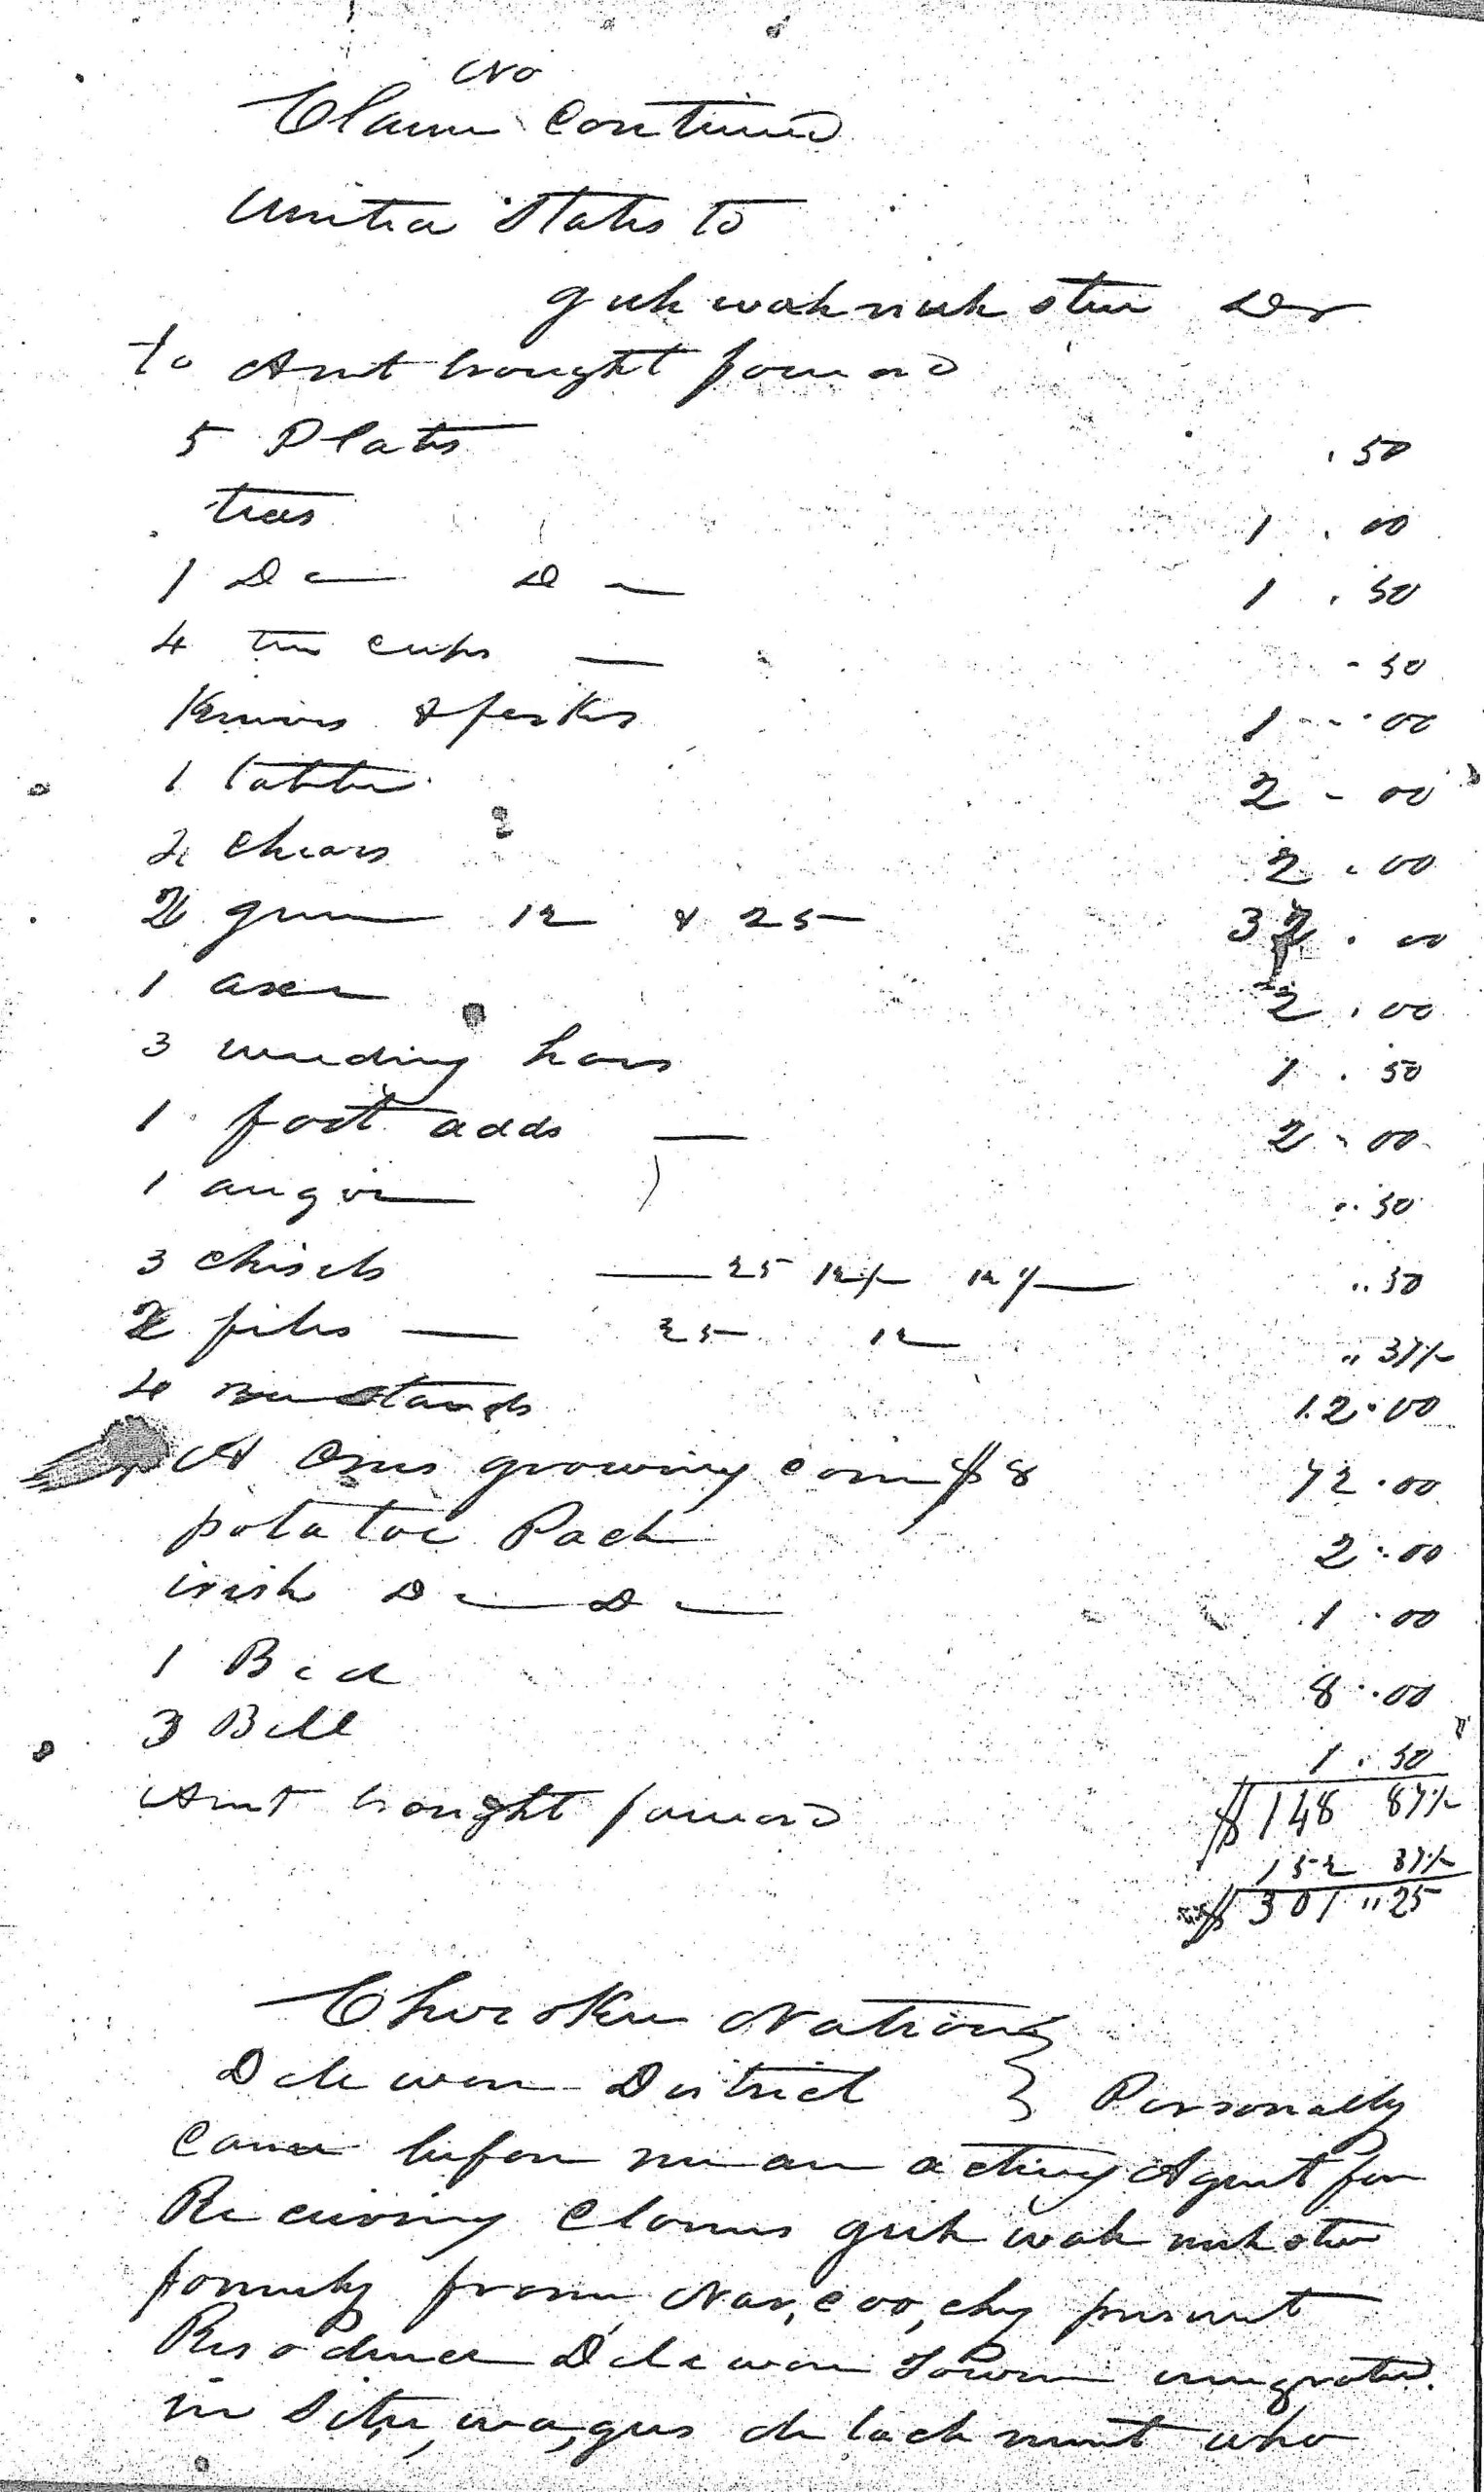 No
Claim Continued
United States to
guh wah nuh stee Dr
to Amt brought forward
5 Plats .50
trees 1.00
1 Do Do 1.50
4 tin cups — .50
Knives & forks 1.00
1 table 2.00
2 chears 2.00
2 guns 12 & 25 37.00
1 axe 2.00
3 weeding hoes 1.50
1 foot adds — 2.00
1 auger .50
3 chisels — 25 12½ 12½ — .50
2 files — 25 12 .37½
4 stands 12.00
Acres growing corn $8 72.00
potatoe Pach 2.00
irish Do Do 1.00
1 Bed 8.00
3 Bell 1.50
$148 87½
Amt brought forward
152 37½
$301 "25
Cherokee Nation }
Delewere District } Personally
Came before me an acting Agent for
Receiving Claims guh wah nuh stee
formerly from Nar,coo,chy present
Resodence Delewere Town emegrated
in Situ,wa,gus detachment who